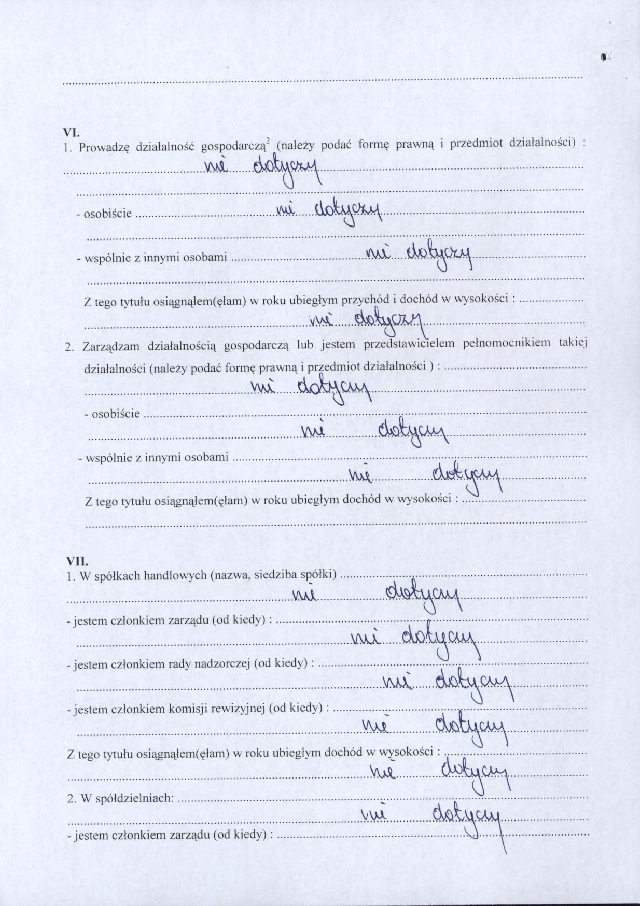 VI.
1. Prowadzę działalność gospodarczą² (należy podać formę prawną i przedmiot działalności) :
nie dotyczy
- osobiście nie dotyczy
- wspólnie z innymi osobami nie dotyczy
Z tego tytułu osiągnąłem(ęłam) w roku ubiegłym przychód i dochód w wysokości :
nie dotyczy
2. Zarządzam działalnością gospodarczą lub jestem przedstawicielem pełnomocnikiem takiej
działalności (należy podać formę prawną i przedmiot działalności ) :
nie dotyczy
- osobiście
nie dotyczy
- wspólnie z innymi osobami
nie dotyczy
Z tego tytułu osiągnąłem(ęłam) w roku ubiegłym dochód w wysokości :
VII.
1. W spółkach handlowych (nazwa, siedziba spółki)
nie dotyczy
- jestem członkiem zarządu (od kiedy) :
nie dotyczy
- jestem członkiem rady nadzorczej (od kiedy) :
nie dotyczy
- jestem członkiem komisji rewizyjnej (od kiedy) :
nie dotyczy
Z tego tytułu osiągnąłem(ęłam) w roku ubiegłym dochód w wysokości :
nie dotyczy
2. W spółdzielniach:
nie dotyczy
- jestem członkiem zarządu (od kiedy) :